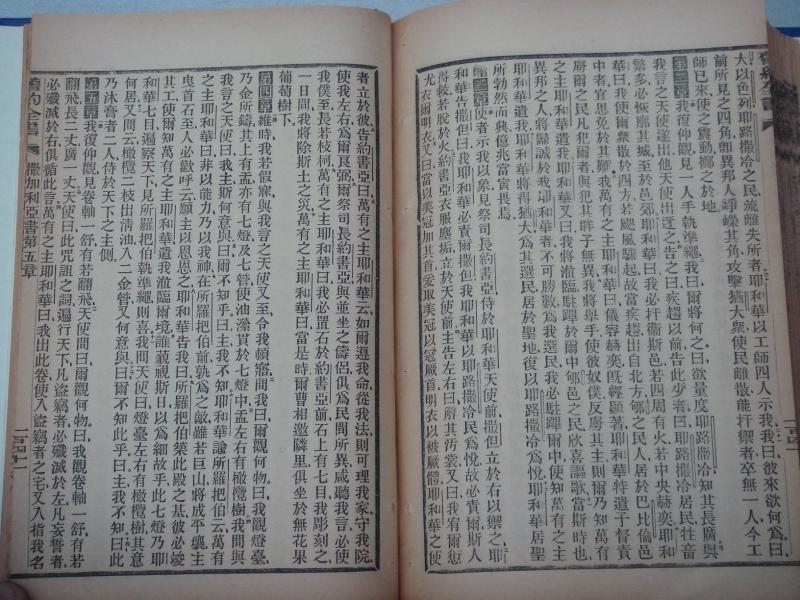 大以色列耶路撒冷之民流離失所者耶和華以工師四人示我我曰彼來欲何爲曰
前所見之四角卽異邦人崢嶸其角攻擊猶大衆使民離散能扞禦者卒無一人今工
師已來使之震動擲之於地
第二章我復仰觀見一人手執準繩我曰爾將何之曰欲量度耶路撒冷知其長廣與
我言之天使遂出他天使出迓之告之曰疾趨以前告此少者曰耶路撒冷居民牲畜
繁多必恢廓其城至於邑郊耶和華曰我必扞衞斯邑若四周有火若中央赫奕耶和
華曰我使爾衆散於四方若颶風驟起故當疾趨出自北方郇之民人居於巴比倫邑
中者宜思免萬有之主耶和華曰儀容赫奕旣經顯著耶和華特遣予督責
爾之民凡犯爾者與犯其眸子無異我將舉手使彼奴僕反虜其主則爾乃知萬有
之主耶和華遣我郇邑之民欣喜謳歌當斯時也
異邦之人將歸誠於我耶和華者不可勝數爲我選民我必駐蹕於爾中使爾知萬有之主
耶和華遣我耶和華將得猶大爲其選民居於聖地復以耶路撒冷爲悅耶和華居聖
所勃然而興億兆當寅畏焉
第三章使者示我以象見祭司長約書亞侍於耶和華天使前撒但立於右以禦之耶
和華告撒但曰我耶和華必責爾撒但我耶和華以耶路撒冷民爲悅故必責爾斯人
得救若脫於火約書亞衣服塵垢立於天使前主告左右曰解其汚裳又曰我宥爾愆
尤衣爾明衣又曰當以美冠加其首妥取美冠以冠厥首明衣以被厥體耶和華之使
者立於彼告約書亞曰萬有之主耶和華云如爾遵我命從我法則可理我家守我院
使我左右爲爾艮弼爾祭司長約書亞與並坐之儔侶俱爲民間所異咸聽我言必使
我僕至長若枝柯萬有之主耶和華曰我必置石於約書亞前石上有七目我彫刻之
一日間我將除斯土之災萬有之主耶和華曰當是時爾曹相邀隣里俱坐於無花果
葡萄樹下
第四章維時我若假寐與我言之天使又至令我頓寤問我曰爾觀何物曰我觀燈臺
乃金所鑄其上有盂亦有七燈及七管使油灤貫於七燈中盂左右有橄欖樹我問與
我言之天使曰我主斯何意與曰爾不知乎曰主我不知耶和華諭所羅把伯云萬有
之主耶和華曰非以能力乃以我神在所羅把伯前孰爲之敵雖若巨山將成平壤主
曳首石至人必歡呼云願主以恩恩之耶和華告我曰所羅把伯築此殿之基彼必竣
其工使爾知萬有之主耶和華遣我涖臨爾境誰藐視斯日以爲細故乎此七燈乃耶
和華七目遍察天下見所羅把伯執準繩則喜我問天使曰燈臺左右有橄欖樹其意
何居又問云橄欖二枝出淸油入二金管又何意與曰爾不知此乎曰主我不知曰此
乃沐膏者二人侍於天下之主側
第五章我復仰觀見卷軸一舒有若翻飛天使問曰爾觀何物曰我觀卷軸一舒有若
翻飛長二丈廣一丈天使曰此咒詛之詞遍行天下凡盜竊者必殲滅於左凡妄誓者
必殲滅於右俱循此言萬有之主耶和華曰我出此卷使入盜竊者之宅又入指我名
舊約全書 撒加利亞書第五章 一百四十一